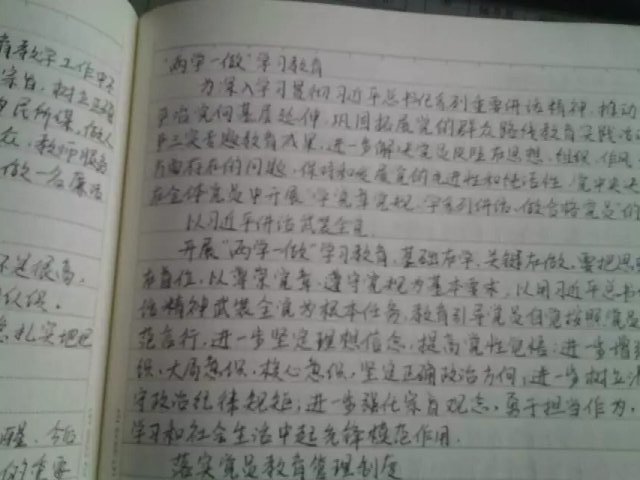 育教学工作中不
宗旨，树立正确
民所谋，做人
众，教师服务
做一名廉洁
不是很高，
仪俱。
扎实把已
今后
的重要
"两学一做"学习教育
为深入学习贯彻习近平总书记系列重要讲话精神，推动
从严治党向基层延伸，巩固拓展党的群众路线教育实践活
三严三实专题教育成果，进一步解决党员队伍在思想、组织、作风、
方面存在的问题，保持和发展党的先进性和纯洁性，党中央决
在全体党员中开展"学党章党规、学系列讲话，做合格党员"的
以习近平讲话武装全党
开展"两学一做"学习教育，基础在学，关键在做。要把思
在首位，以尊崇党章、遵守党规为基本要求，以用习近平总书
话精神武装全党为根本任务，教育引导党员自觉按照党员
范言行，进一步坚定理想信念，提高党性觉悟；进一步增强
识、大局意识、核心意识，坚定正确政治方向；进一步树立
守政治纪律规矩；进一步强化宗旨观念，勇于担当作为，
学习和社会生活中起先锋模范作用。
落实党员教育管理制度